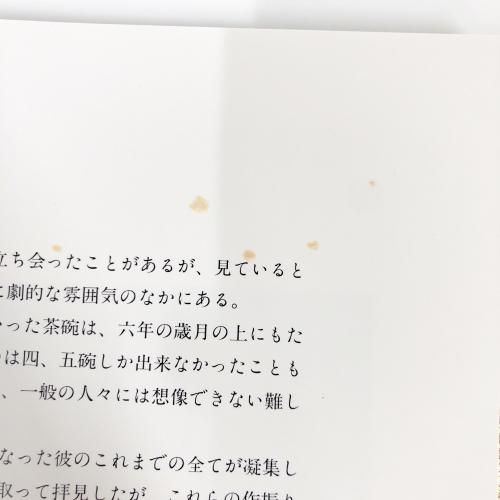 立ち会ったことがあるが、見ていると
に劇的な雰囲気のなかにある。
かった茶碗は、六年の歳月の上にもた
は四、五碗しか出来なかったことも
、一般の人々には想像できない難し
なった彼のこれまでの全てが凝集し
取って拝見したが、これらの作振り